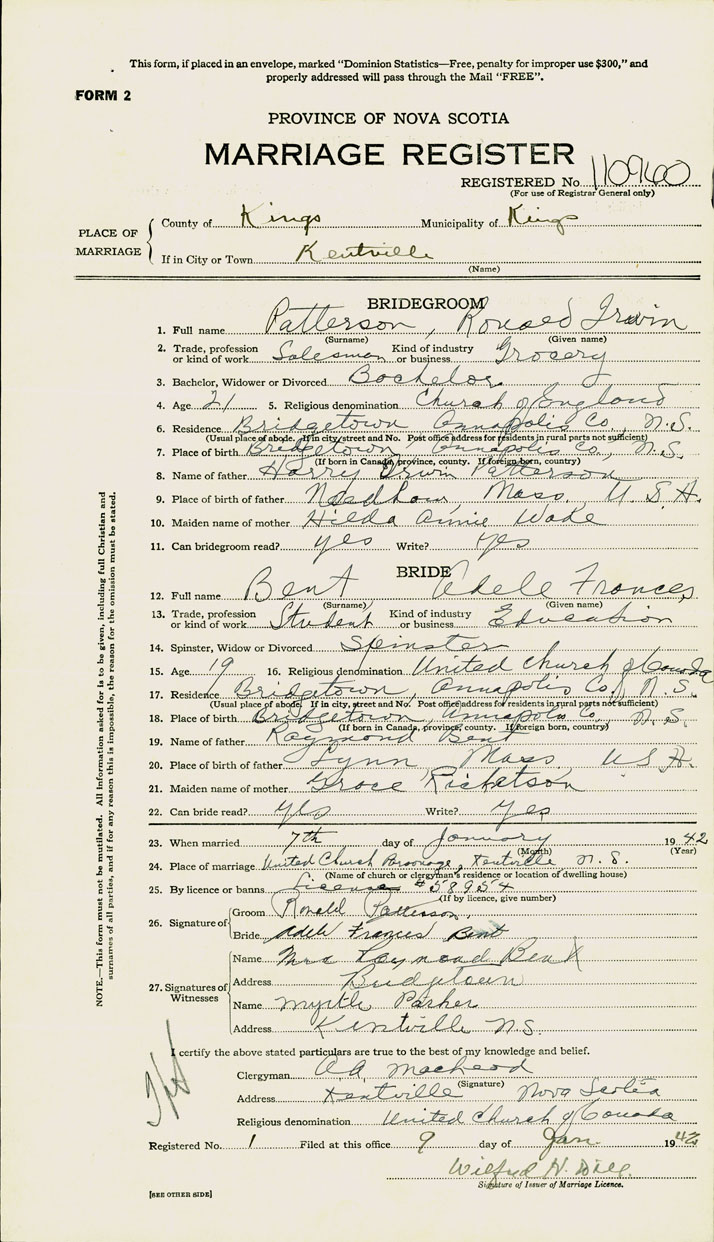 This form, if placed in an envelope, marked “Dominion Statistics—Free, penalty for improper use $300,” and
properly addressed will pass through the Mail “FREE”.
FORM 2
PROVINCE OF NOVA SCOTIA
MARRIAGE REGISTER
REGISTERED No. 110960
(For use of Registrar General only)
PLACE OF MARRIAGE
County of Kings Municipality of Kings
If in City or Town Kentville
(Name)
BRIDEGROOM
1. Full name Patterson, Ronald Irwin
(Surname) (Given name)
2. Trade, profession or kind of work Salesman Kind of industry or business Grocery
3. Bachelor, Widower or Divorced Bachelor
4. Age 21 5. Religious denomination Church of England
6. Residence Bridgetown Annapolis Co., N.S.
(Usual place of abode. If in city, street and No. Post office address for residents in rural parts not sufficient)
7. Place of birth Bridgetown, Annapolis Co., N.S.
(If born in Canada, province, county. If foreign born, country)
8. Name of father Harry Irwin Patterson
9. Place of birth of father Needham, Mass, U.S.A.
10. Maiden name of mother Hilda Annie Wade
11. Can bridegroom read? yes Write? yes
BRIDE
12. Full name Bent Adele Frances
(Surname) (Given name)
13. Trade, profession or kind of work Student Kind of industry or business Education
14. Spinster, Widow or Divorced Spinster
15. Age 19 16. Religious denomination United Church of Canada
17. Residence Bridgetown, Annapolis Co., N.S.
(Usual place of abode. If in city, street and No. Post office address for residents in rural parts not sufficient)
18. Place of birth Bridgetown, Annapolis Co., N.S.
(If born in Canada, province, county. If foreign born, country)
19. Name of father Raymond Bent
20. Place of birth of father Lynn, Mass, USA.
21. Maiden name of mother Grace Ricketson
22. Can bride read? yes Write? yes
23. When married 7th day of January 1942
(Month) (Year)
24. Place of marriage United Church Parsonage, Kentville, N.S.
(Name of church or clergyman's residence or location of dwelling house)
25. By licence or banns License #58954
(If by licence, give number)
26. Signature of
Groom Ronald Patterson.
Bride Adele Frances Bent
27. Signatures of Witnesses
Name Mrs Raymond Bent
Address Bridgetown
Name Myrtle Parker
Address Kentville N.S.
I certify the above stated particulars are true to the best of my knowledge and belief.
Clergyman A.A. MacLeod
(Signature)
Address Kentville Nova Scotia
Religious denomination United Church of Canada
Registered No. 1 Filed at this office 9 day of Jan. 1942
Wilfred H. Dill.
Signature of Issuer of Marriage Licence.
[SEE OTHER SIDE]
NOTE.—This form must not be mutilated. All Information asked for is to be given, including full Christian and
surnames of all parties, and if for any reason this is impossible, the reason for the omission must be stated.